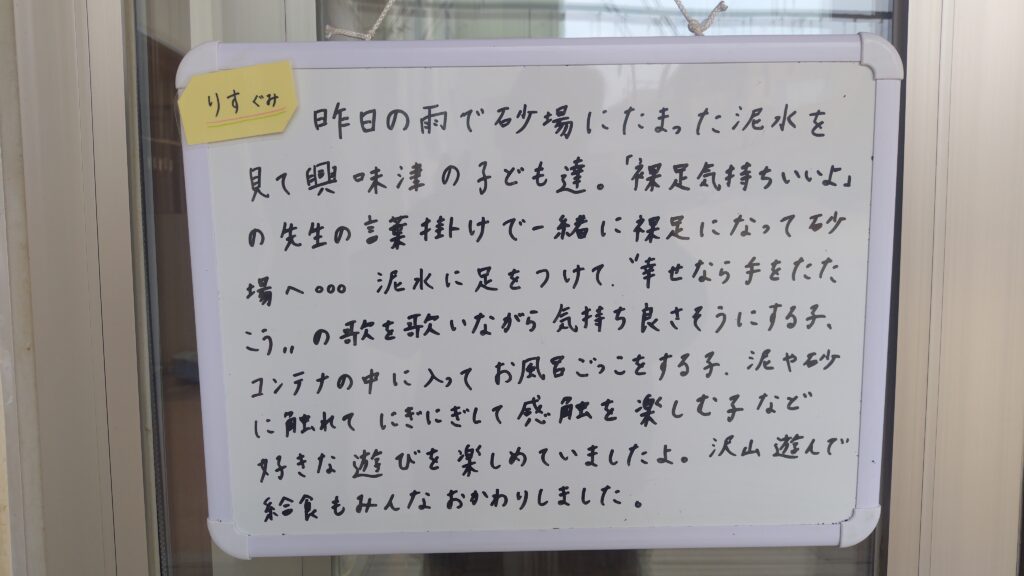 りすぐみ
昨日の雨で砂場にたまった泥水を
見て興味津の子ども達。「裸足気持ちいいよ」
の先生の言葉掛けで一緒に裸足になって砂
場へ... 泥水に足をつけて、〝幸せなら手をたた
こう〟の歌を歌いながら気持ち良さそうにする子、
コンテナの中に入ってお風呂ごっこをする子、泥や砂
に触れてにぎにぎして感触を楽しむ子など
好きな遊びを楽しめていましたよ。沢山遊んで
給食もみんなおかわりしました。